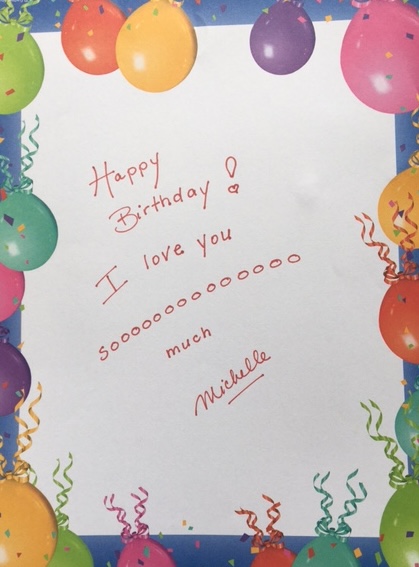 Happy
Birthday!
I love you
soooooooooooooo
much
Michelle